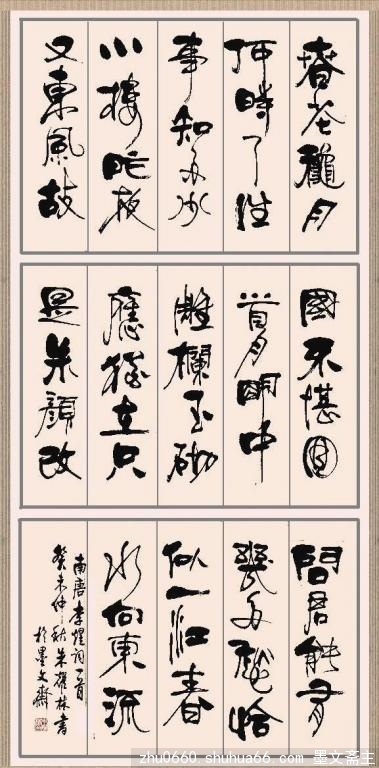 春花龝月
何時了往
事知多少
小樓昨夜
又東風故
國不堪回
首月明中
雕欄玉砌
應猶在只
是朱顔改
問君能有
幾多愁恰
似一江春
水向東流
南唐李煜詞一首
癸未仲秋朱雄林書
於墨文齋
zhu0660.shuhua66.com 墨文斋主